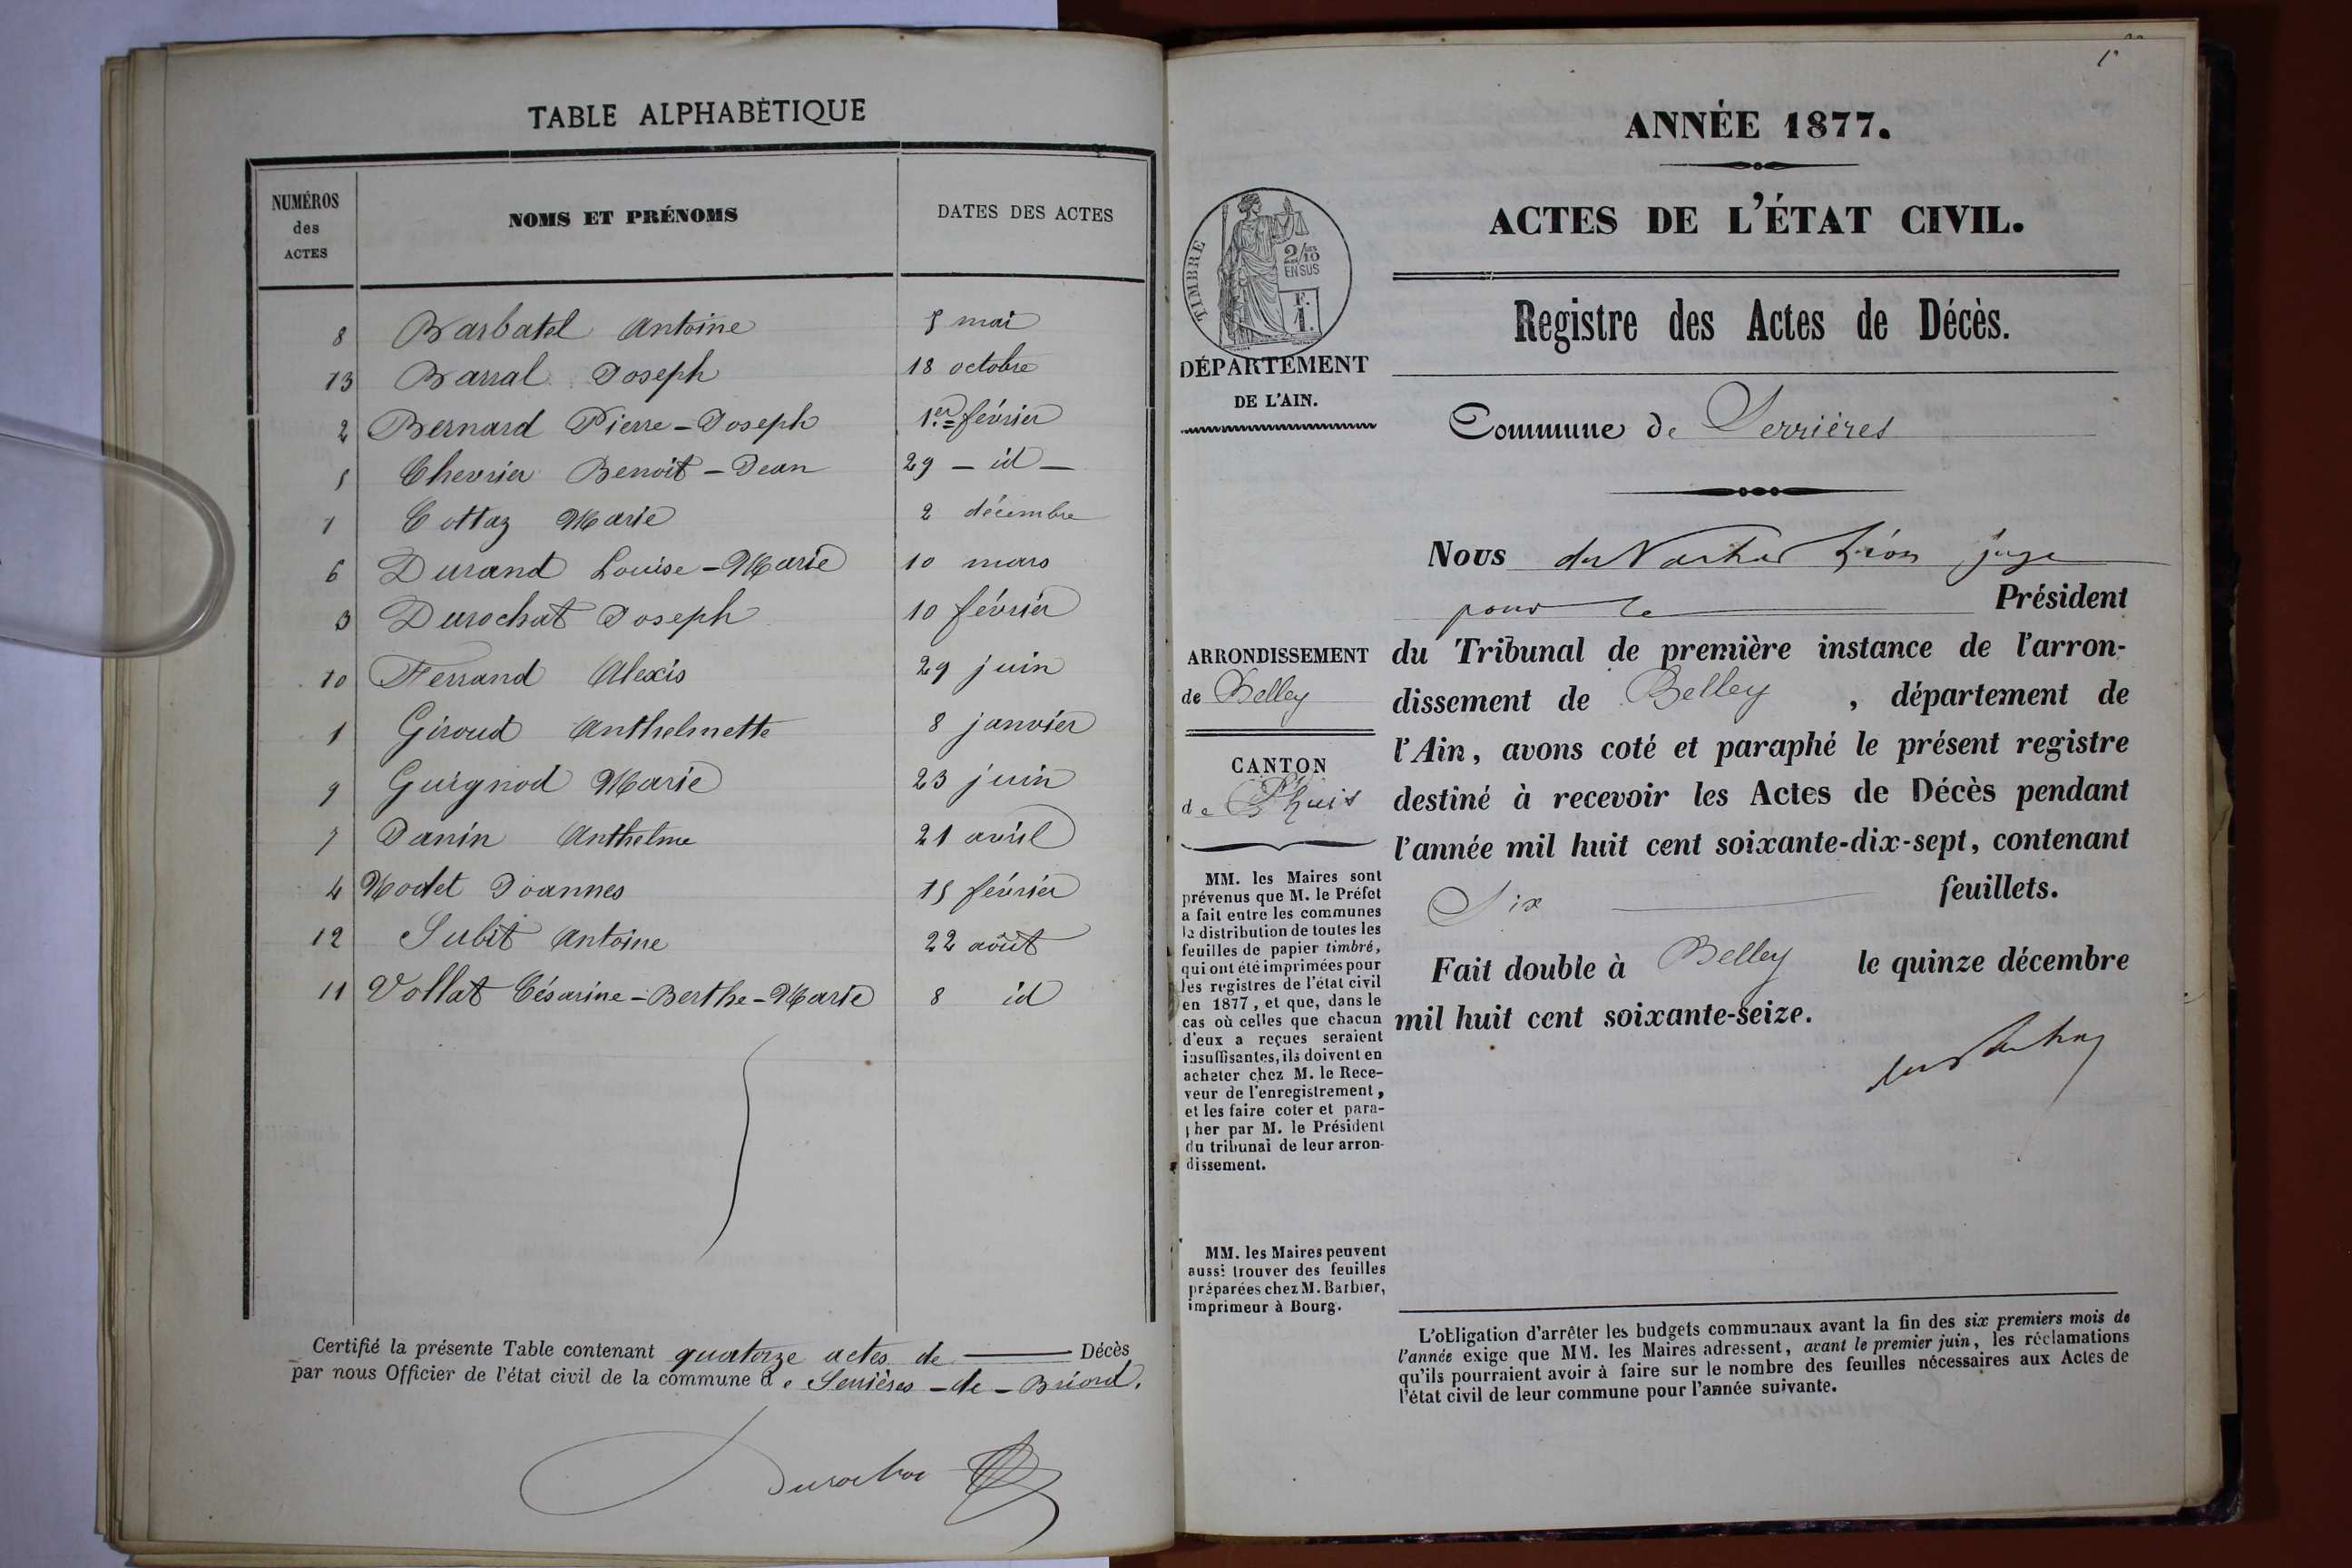 TABLE ALPHABÉTIQUE
NUMÉROS des ACTES
NOMS ET PRÉNOMS
DATES DES ACTES
8 Barbatel Antoine 5 mai
13 Barral Joseph 18 octobre
2 Bernard Pierre-Joseph 1er février
5 Chevrier Benoît-Jean 29 - id -
1 Cottaz Marie 2 décembre
6 Durand Louise-Marie 10 mars
3 Durochat Joseph 10 février
10 Ferrand Alexis 29 juin
1 Giroud Anthelmette 8 janvier
9 Guignod Marie 23 juin
7 Janin Anthelme 21 avril
4 Modet Joannes 15 février
12 Subit Antoine 22 août
11 Vollat Césarine-Berthe-Marie 8 id
Certifié la présente Table contenant quatorze actes de Décès
par nous Officier de l'état civil de la commune de Serrières-de-Briord.
Durochat
1er
ANNÉE 1877.
ACTES DE L'ÉTAT CIVIL.
TIMBRE
2/10
EN SUS
F.
1.
Registre des Actes de Décès.
DÉPARTEMENT
DE L'AIN.
Commune de Serrières
Nous Léon juge
pour le Président
du Tribunal de première instance de l'arron-
dissement de Belley, département de
l'Ain, avons coté et paraphé le présent registre
destiné à recevoir les Actes de Décès pendant
l'année mil huit cent soixante-dix-sept, contenant
Six feuillets.
Fait double à Belley le quinze décembre
mil huit cent soixante-seize.
ARRONDISSEMENT
de Belley
CANTON
de Lhuis
MM. les Maires sont
prévenus que M. le Préfet
a fait entre les communes
la distribution de toutes les
feuilles de papier timbré,
qui ont été imprimées pour
les registres de l'état civil
en 1877, et que, dans le
cas où celles que chacun
d'eux a reçues seraient
insuffisantes, ils doivent en
acheter chez M. le Rece-
veur de l'enregistrement,
et les faire coter et para-
pher par M. le Président
du tribunal de leur arron-
dissement.
MM. les Maires peuvent
aussi trouver des feuilles
préparées chez M. Barbier,
imprimeur à Bourg.
L'obligation d'arrêter les budgets communaux avant la fin des six premiers mois de
l'année exige que MM. les Maires adressent, avant le premier juin, les réclamations
qu'ils pourraient avoir à faire sur le nombre des feuilles nécessaires aux Actes de
l'état civil de leur commune pour l'année suivante.